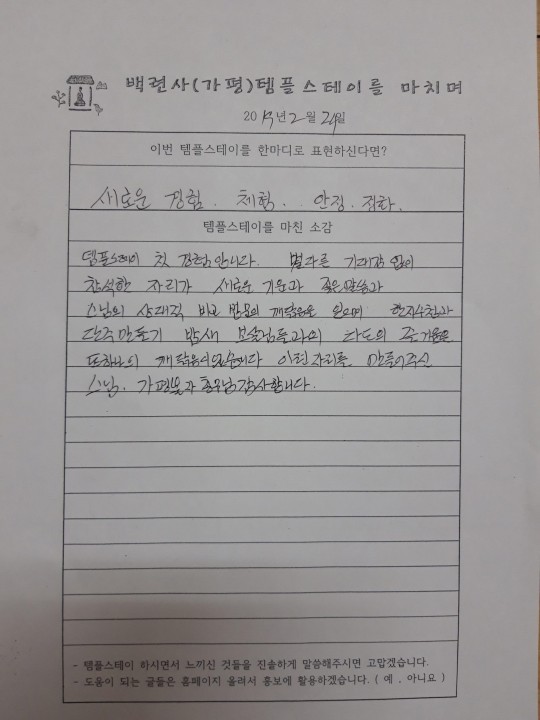 백련사(가평)템플스테이를 마치며
2019년 2월 24일
이번 템플스테이를 한마디로 표현하신다면?
새로운 경험. 체험. 안정. 정화.
템플스테이를 마친 소감
템플스테이 첫 경험입니다. 별다른 기대감 없이
참석한 자리가 새로운 기운과 좋은말씀과
스님의 상대적 비교 방법의 깨달음을 얻으며
단주만들기 밤새 보살님들과의 다도의 즐거움은
또하나의 깨달음이었습니다 이런자리를 만들어주신
스님. 감사합니다.
- 템플스테이 하시면서 느끼신 것들을 진솔하게 말씀해주시면 고맙겠습니다.
- 도움이 되는 글들은 홈페이지 올려서 홍보에 활용하겠습니다. ( 예 , 아니요 )